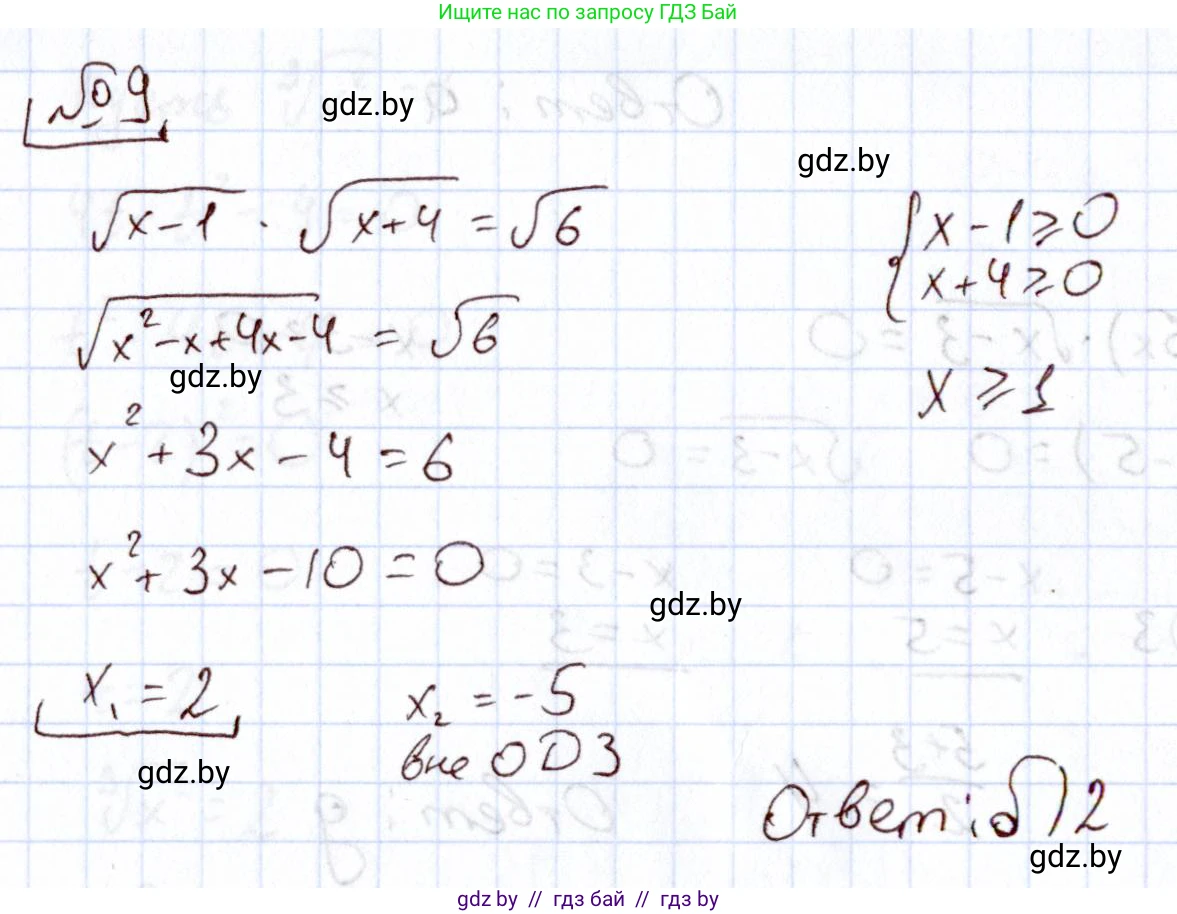 Ищите нас по запросу ГДЗ Бай
№ 9
gdz.by
gdz.by
√(x-1) · √(x+4) = √6
{ x-1 ≥ 0
x+4 ≥ 0
√(x²-x+4x-4) = √6
gdz.by
x ≥ 1
x² + 3x - 4 = 6
x² + 3x - 10 = 0
gdz.by
x₁ = 2
x₂ = -5
вне ОДЗ
gdz.by
Ответ: б) 2
gdz.by
gdz by // гдз бай // гдз by